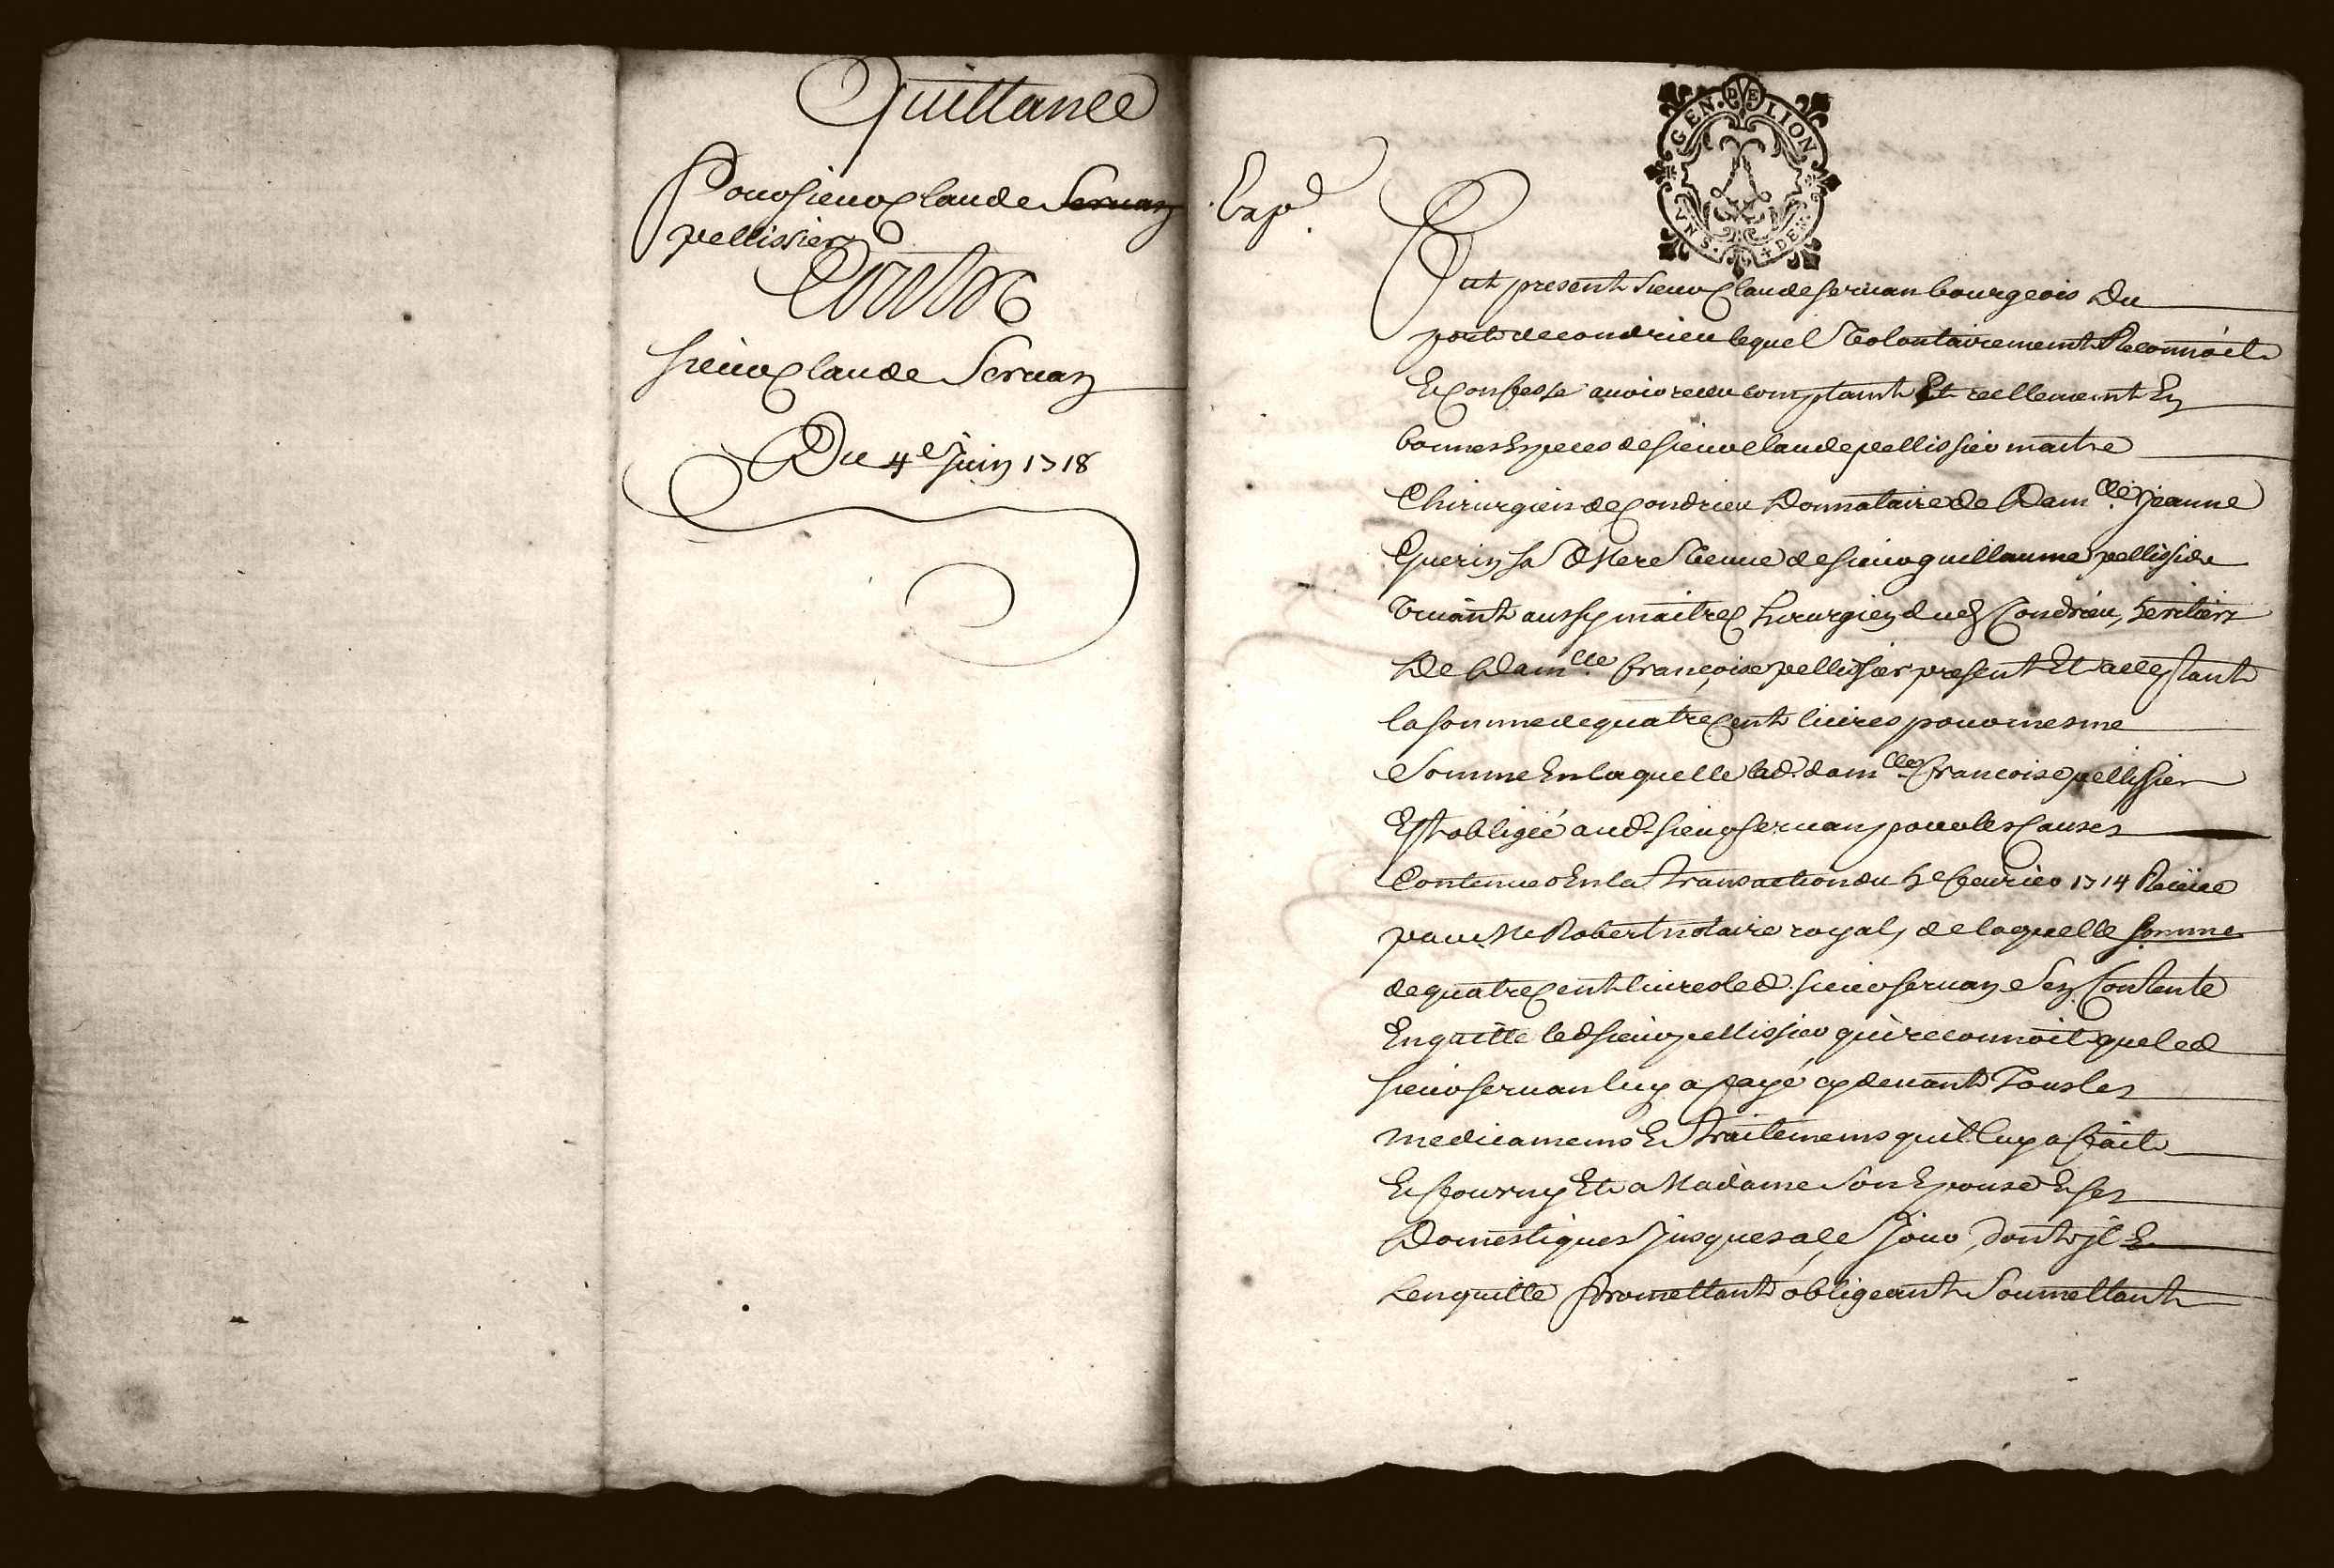 Quittance
Pour sieur Claude Servan
pellissier
Contre
sieur Claude Servan
Du 4e Juin 1718
Exp.d
GEN. DE LION
Fut present sieur Claude servan bourgeois Du
port de condrieu lequel Volontairement Reconnoit
Et Confesse auoir receu comptant Et reellement En
bonnes Especes de sieur claude pellissier maitre
Chirurgien de Condrieu Donnataire de Dam.lle jeanne
Guerin sa Mere Veuue de sieur guillaume pellissier
Viuant aussy maitre Chirurgien dud Condrieu, heritiere
De Dam.lle françoise pellissier present Et acceptant
la somme de quatre Cent liures pour mesme
Somme En laquelle lad. dam.lle francoise pellissier
Est obligée aud. sieur servan pour les Causes
Contenues En la transaction du 5e feurier 1714 Receüe
par Me Robert notaire royal, de laquelle somme
de quatre Cent liures led. sieur servan s'en Contente
En quitte led sieur pellissier qui reconnoit que led
sieur servan luy a payé cy deuant Tous les
medicamens Et traitemens quil luy a fait
Et fourny Et a Madame son Epouse Et ses
Domestiques jusques a ce jour, dont jl
L'en quitte promettant obligeant Soumettant